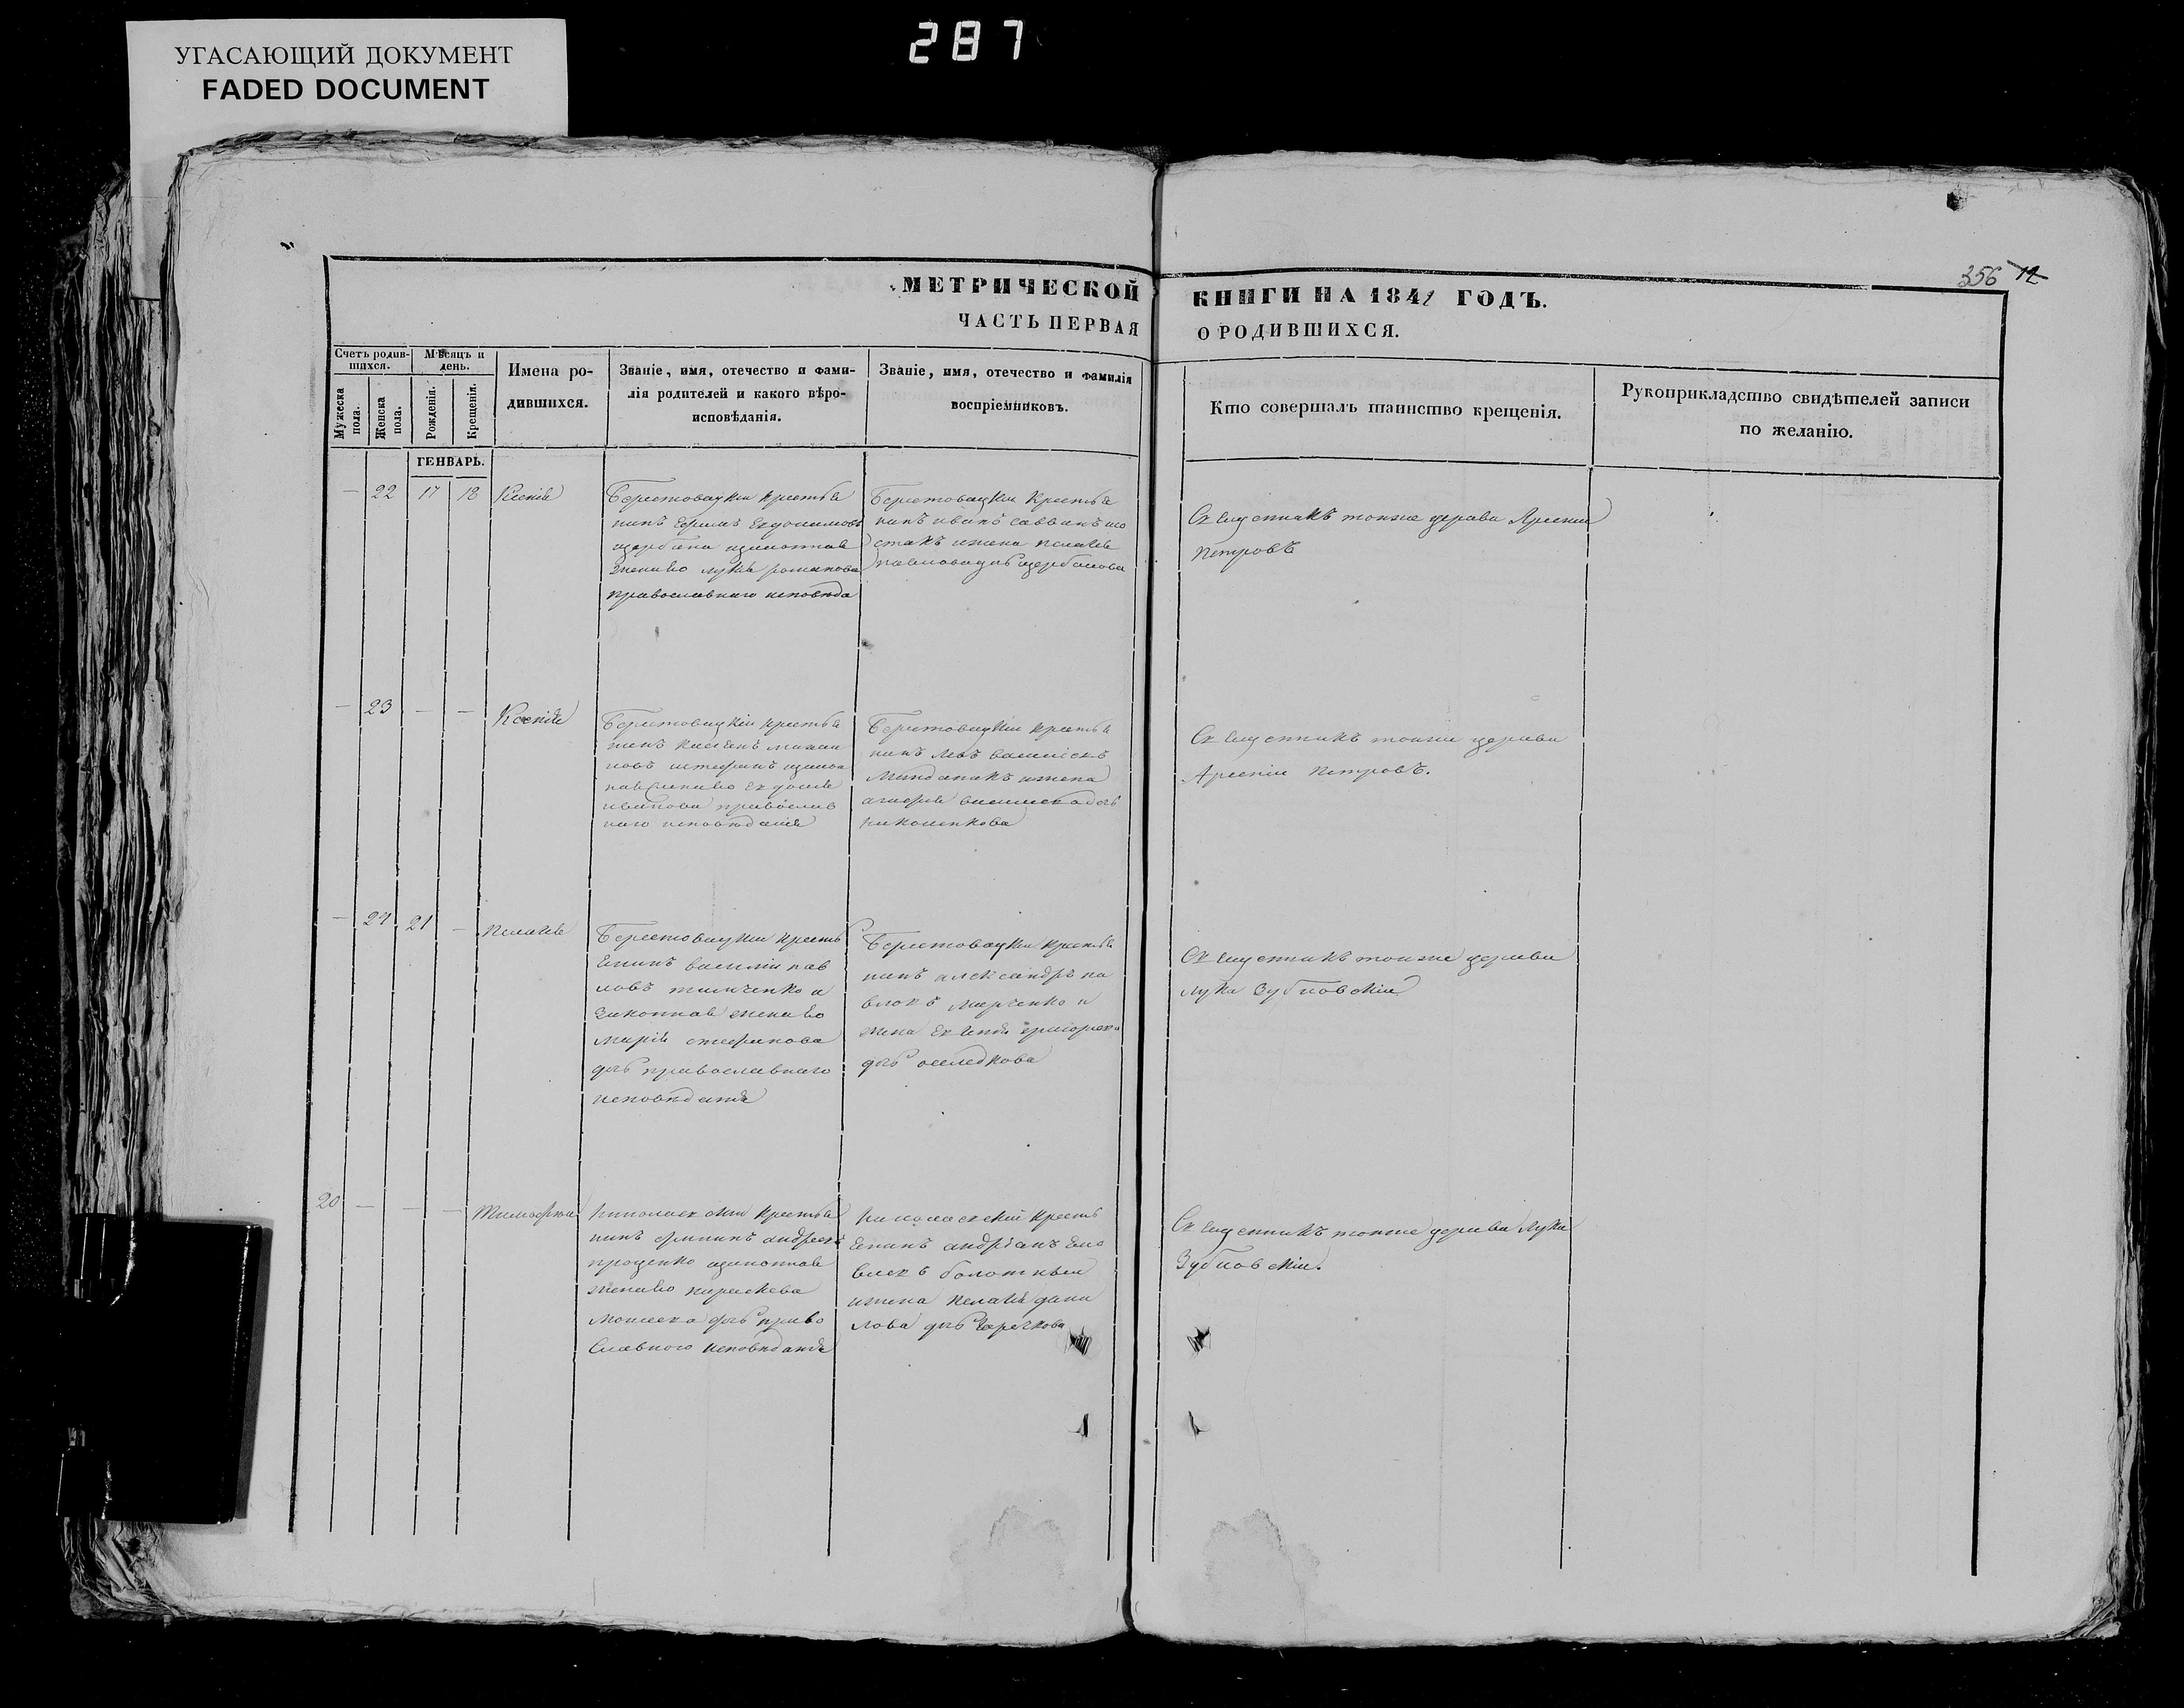 287
УГАСАЮЩИЙ ДОКУМЕНТ
FADED DOCUMENT
356 12
МЕТРИЧЕСКОЙ КНИГИ НА 1841 ГОДЪ.
ЧАСТЬ ПЕРВАЯ О РОДИВШИХСЯ.
Счетъ родив-
шихся.
Мужеска
пола.
Женска
пола.
Мѣсяцъ и
день.
Рожденія.
Крещенія.
Имена ро-
дившихся.
Званіе, имя, отечество и фами-
лія родителей и какого вѣро-
исповѣданія.
Званіе, имя, отечество и фамилія
воспріемниковъ.
Кто совершалъ таинство крещенія.
Рукоприкладство свидѣтелей записи
по желанію.
ГЕНВАРЬ.
— 22 17 18 Ксенія
Берестовацкій крестья
нинъ Ефимъ
жена его романова
православнаго исповѣда
Берестовацкій крестья
нинъ иванъ саввинъ шо
стакъ и жена пелагея
павловадчь щербакова
Священникъ тояже церкви Арсеній
Петровъ
— 23 — — Ксенія
Берестовацкій крестья
нинъ
жена его Евдокія
иванова православ
наго исповѣданія
Берестовацкій крестья
нинъ
и жена
агафія
николенкова
Священникъ тояже церкви
Арсеній Петровъ.
— 24 21 — пелагея
Берестовацкій кресть
янинъ василій пав
ловъ тимченко и
законная жена его
марія стефанова
дчь православнаго
исповѣданія
Берестовацкій крестья
нинъ александръ па
вловъ марченко и
жена григорьева
дчь оселедкова
Священникъ тояже церкви
Лука Зубковскій
20 — — — Тимофей
николаевскій крестья
нинъ андреевъ
проценко
жена его параскева
моисеева дчь право
славнаго исповѣданія
николаевскій кресть
янинъ андріанъ
болотный
и жена пелагея дани
лова дчь
Священникъ тояже церкви Лука
Зубковскій.